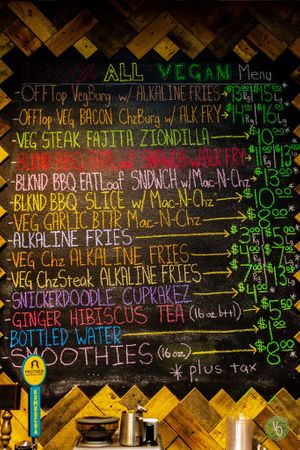 100% ALL VEGAN Menu
-OFFTop VegBurg w/ ALKALINE FRIES
-OFFTop VEG BACON ChzBurg w/ ALK FRY
-VEG STEAK FAJITA ZIONDILLA
-BLKND BBQ EATLoaf SNDWCH w/ALK FRY
-BLKND BBQ EATLoaf SNDWCH w/Mac-N-Chz
-BLKND BBQ SLICE w/ Mac-N-Chz
-VEG GARLIC BTTR MAC-N-Chz
-ALKALINE FRIES
-VEG Chz ALKALINE FRIES
-VEG ChzSteak ALKALINE FRIES
-SNICKERDOODLE CUPKAKEZ
-GINGER HIBISCUS TEA (16oz bttl)
-BOTTLED WATER
-SMOOTHIES (16oz)
$8.00
* plus tax
MOTHER
KOMBUCHA